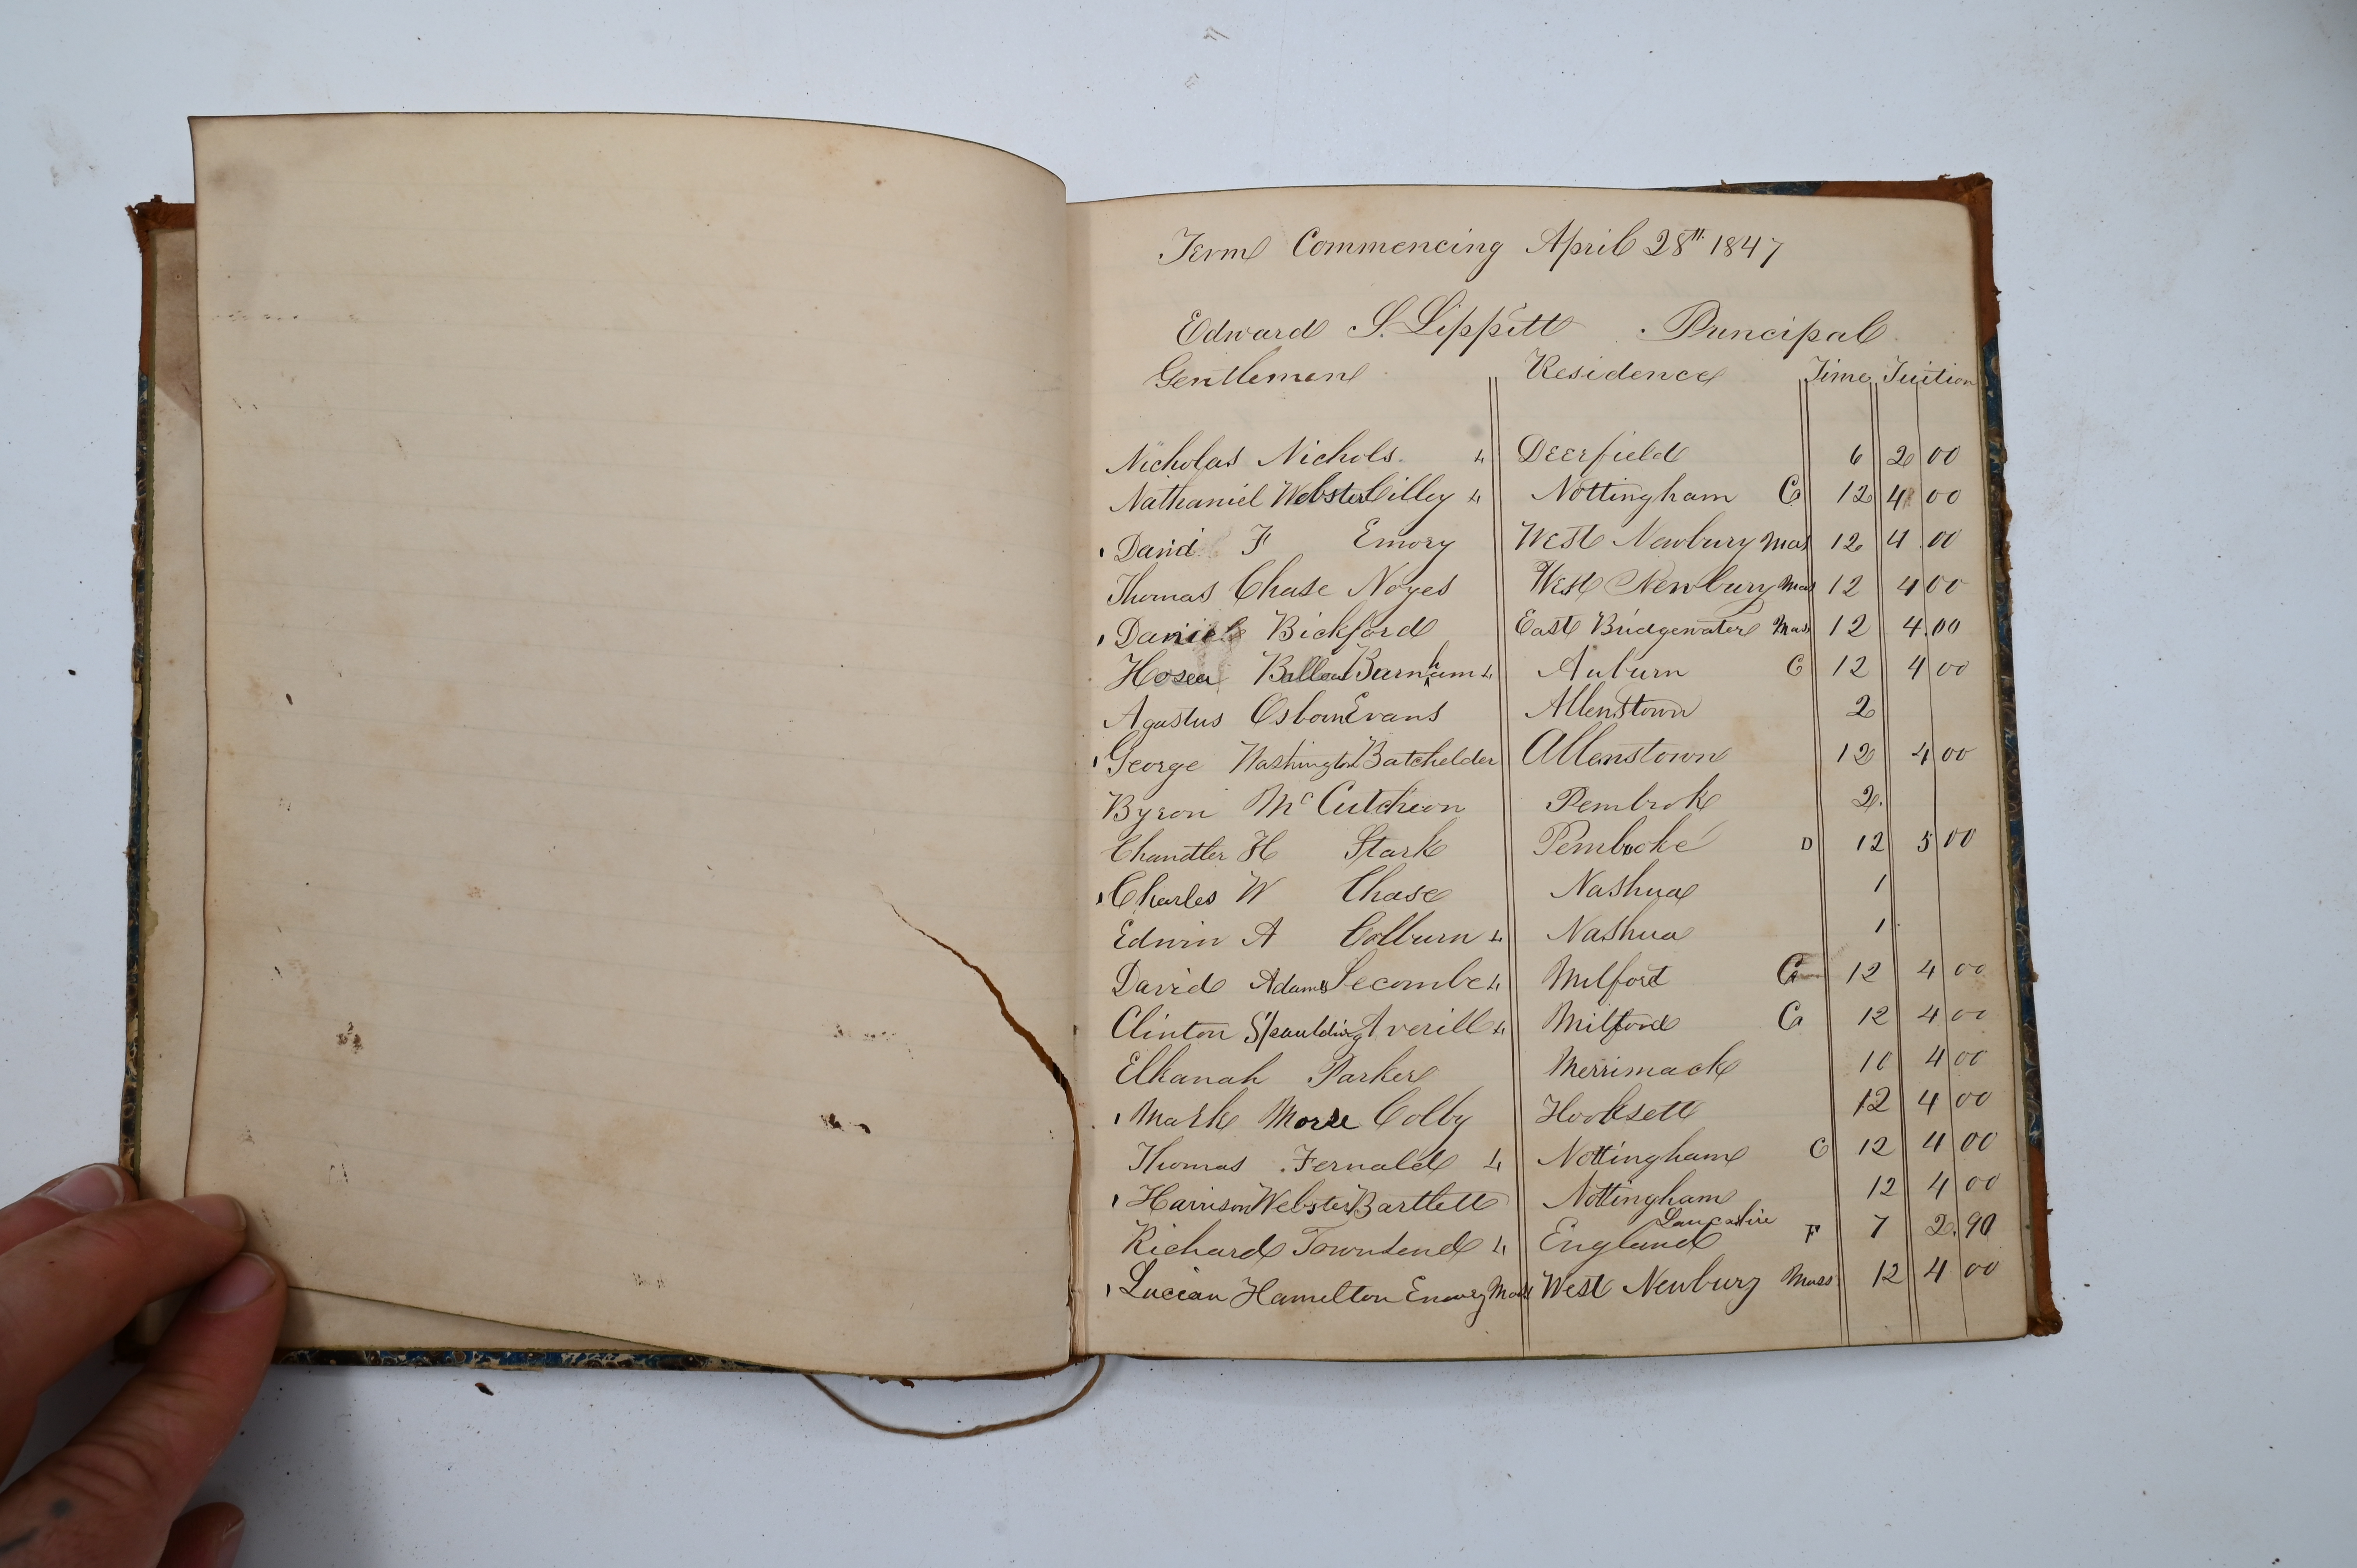 Term Commencing April 28th 1847
Edward S. Lippitt Principal
Gentlemen Residence Time Tuition
Nicholas Nichols. L Deerfield 6 2 00
Nathaniel Webster Cilley L Nottingham C 12 4 00
David F Emory West Newbury Mas 12 4 00
Thomas Chase Noyes West Newbury Mas 12 4 00
Daniel Bickford East Bridgewater Mass 12 4.00
Hosea Ballou Burnham L Auburn C 12 4 00
Agustus Osborn Evans Allenstown 2
George Washington Batchelder Allenstown 12 4 00
Byron McCutcheon Pembroke 2.
Chandler H Stark Pembroke D 12 5 00
Charles W Chase Nashua 1
Edwin A Colburn L Nashua 1
David Adams Secombe L Milford C 12 4 00
Clinton Spaulding Averill L Milford C 12 4 00
Elkanah Parker Merrimack 10 4 00
Mark Morse Colby Hooksett 12 4 00
Thomas Fernald L Nottingham C 12 4 00
Harrison Webster Bartlett Nottingham 12 4 00
Richard Townsend L England Lancashire F 7 2.90
Lucian Hamilton Emory Mass West Newbury Mass 12 4 00